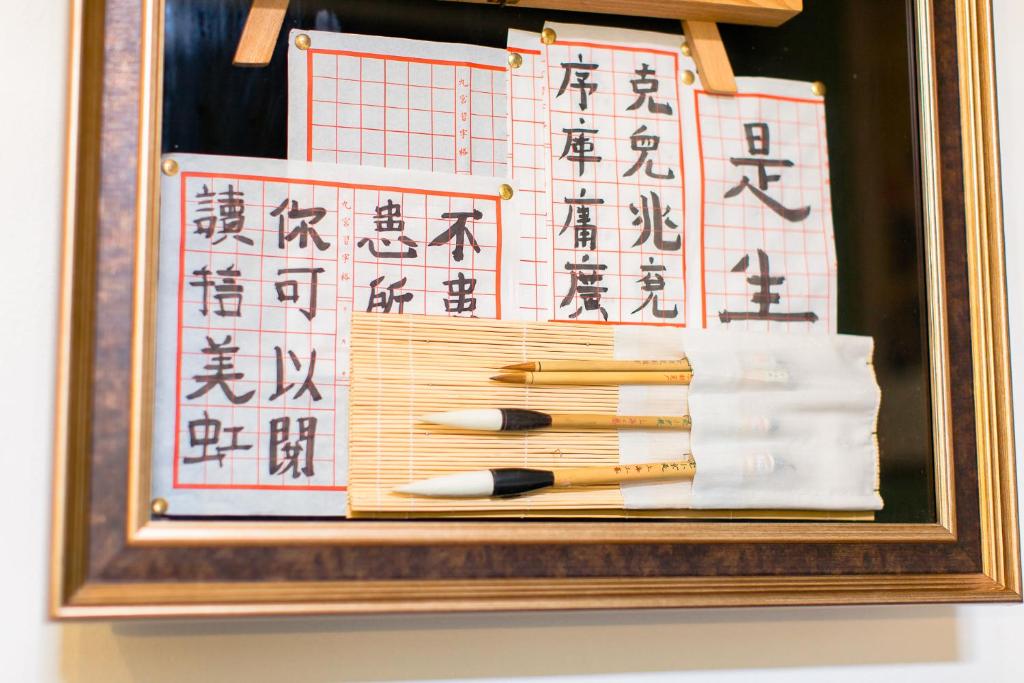 是生
克兒兆充
序庫庸廣
九宮習字格
不患
患所
九宮習字格
你可以閱
讀美虹